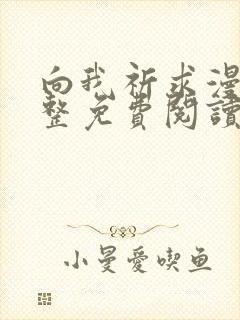 向我祈求漫
整免費閱讀
小曼愛喫鱼